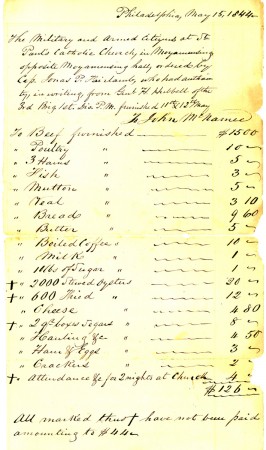 Philadelphia, May 15, 1844
The Military and Armed Citizens at St
Pauls Catholic Church, in Moyamensing
opposite Moyamensing hall, ordered by
Cap. Jonas P. Fairlamb, who had author
ity in writing, from Genl H. Hubbell of the
3rd Brig 1st Div P.M. furnished 11th & 12th May
To John McNamee
To Beef furnished $15 00
" Poultry " 10 -
" 3 Hams " 5 -
" Fish " 3 -
" Mutton " 5 -
" Veal " 3 10
" Bread " 9 60
" Butter " 5 -
" Boiled Coffee " 10 -
" Milk " 1 -
" 10 lbs of Sugar " 1 -
+ " 2000 Stewed Oysters 20 -
+ " 600 Fried " 12 -
" Cheese 4 80
+ " 2 qr boxes Segars " 8 -
" Hauling &c " 4 50
" Ham & Eggs " 3 -
" Crackers " 2 -
+ " Attendance &c for 2 nights at Church 4 -
$126 -
All marked thus + have not been paid
amounting to $44 -